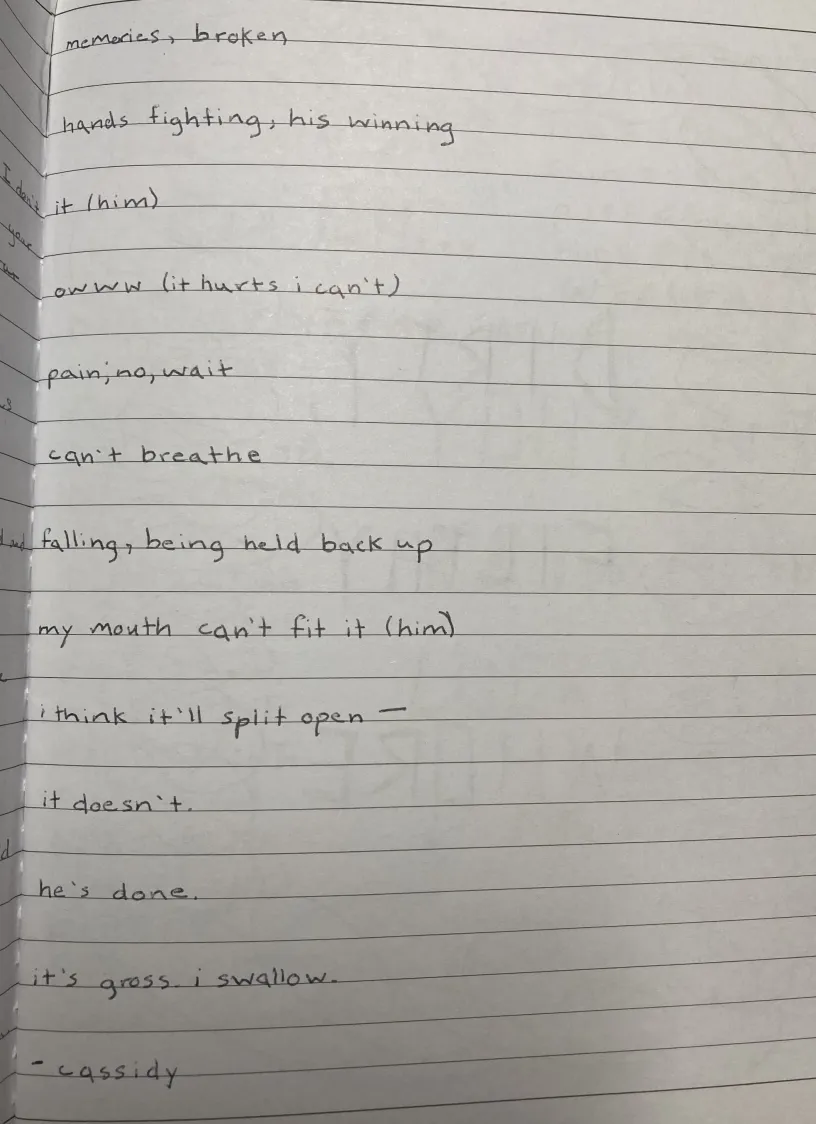 memories, broken
hands fighting, his winning
I don't
it (him)
owww (it hurts i can't)
pain, no, wait
can't breathe
falling, being held back up
my mouth can't fit it (him)
i think it'll split open —
it doesn't.
he's done.
it's gross. i swallow.
- cassidy